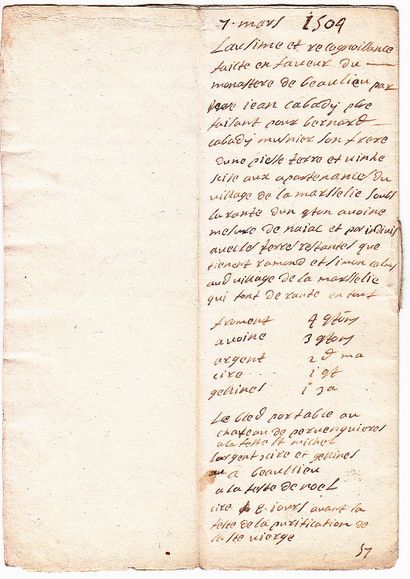 7. mars 1504
Lausime et recognoissance
faicte en faveur du
monastere de beaulieu par
jean cabady pbre
faisant pour bernard
cabady musnier son frere
dune piesse terre et vinhe
scise aux apartenances du
village de la marselie soubs
la rante dun qton avoine
mesure de naiac et par indivis
avec les terres restantes que
tienent ramond et simon
au village de la marselie
qui font de rante en tout
froment 4 qtons
avoine 3 qtons
argent 2 d
cire 1 qt
gellines 1
Le bled portable au
chateau de parvenquieres
a la feste st michel
largent cire et gellines
a beaulieu
a la feste de noel
8 jours avant la
feste de la purification de
la ste vierge
57